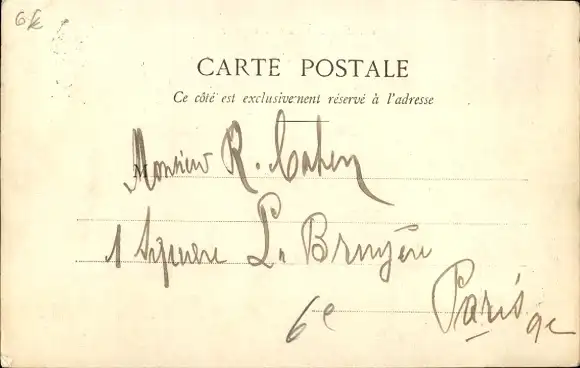 6€
CARTE POSTALE
Ce côté est exclusivement réservé à l'adresse
Monsieur R. Cahen
1 Square La Bruyère
6e Paris 9e